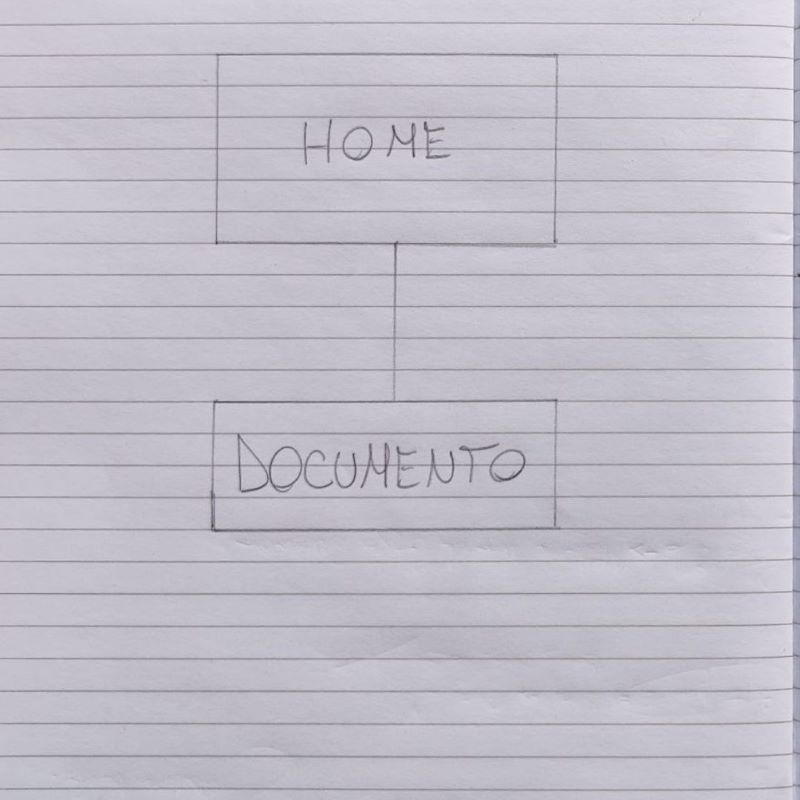 HOME
DOCUMENTO